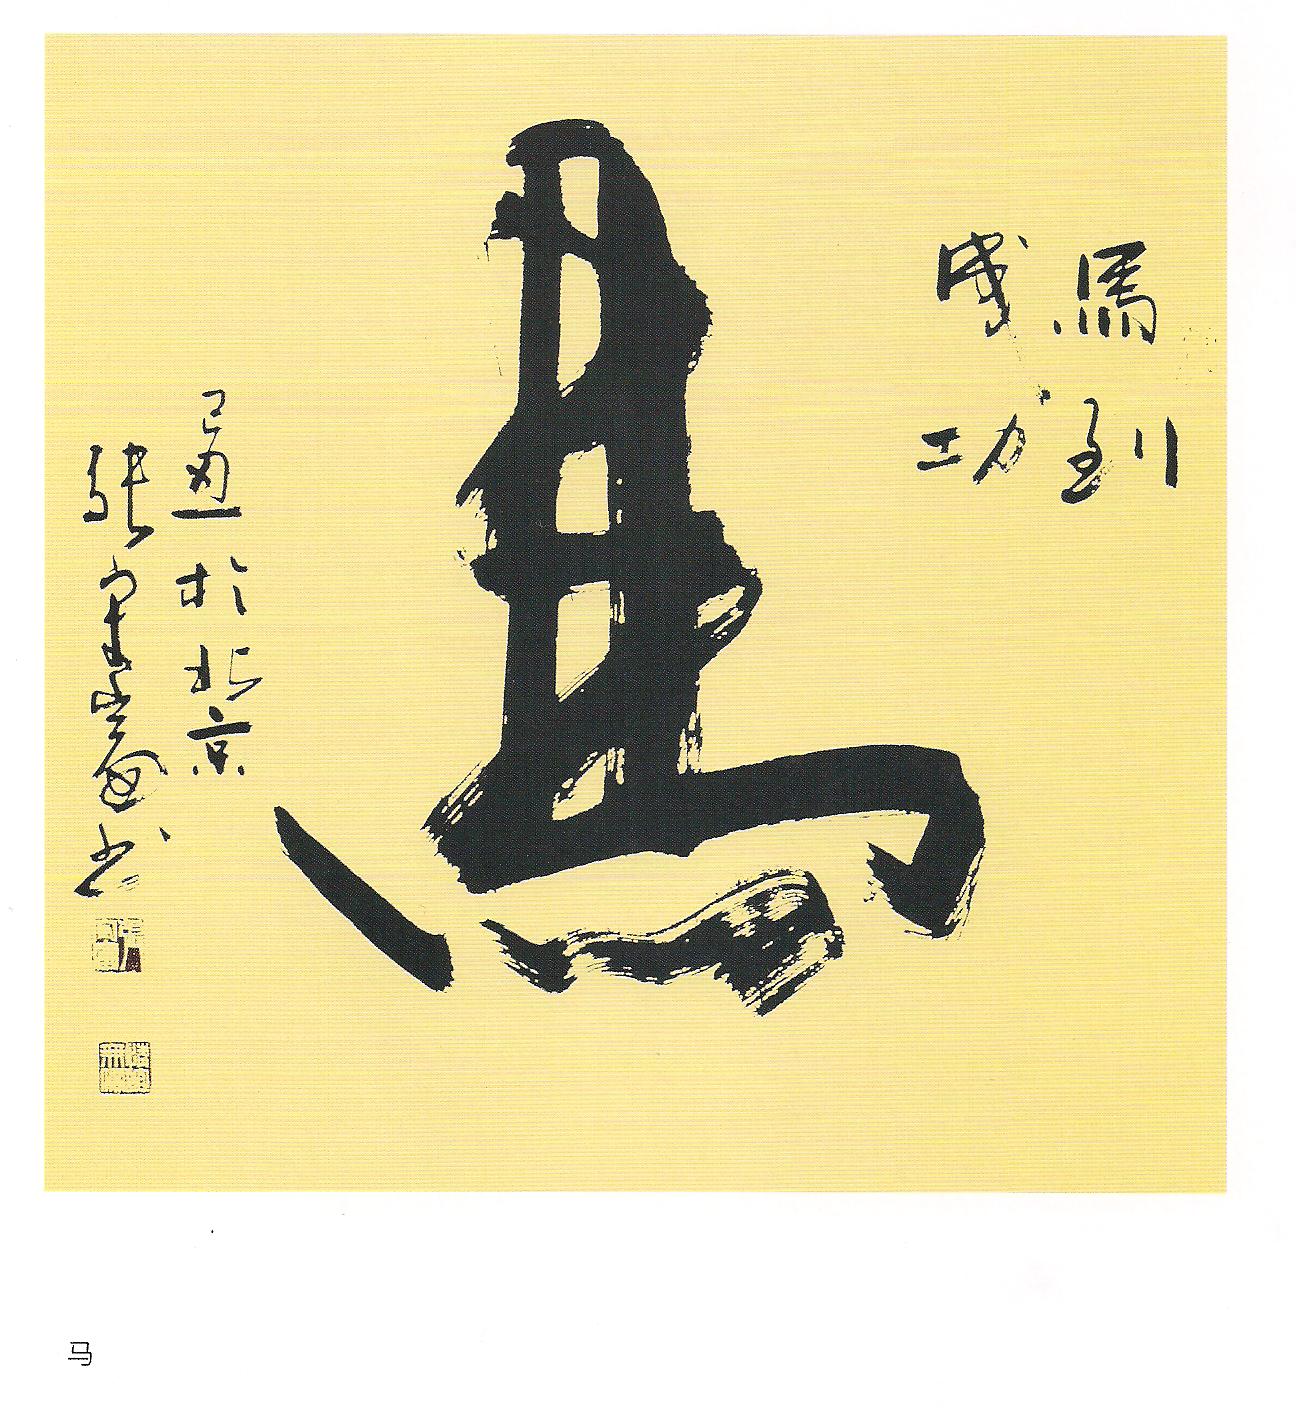 馬到
成功
馬
己丑於北京
張書
马